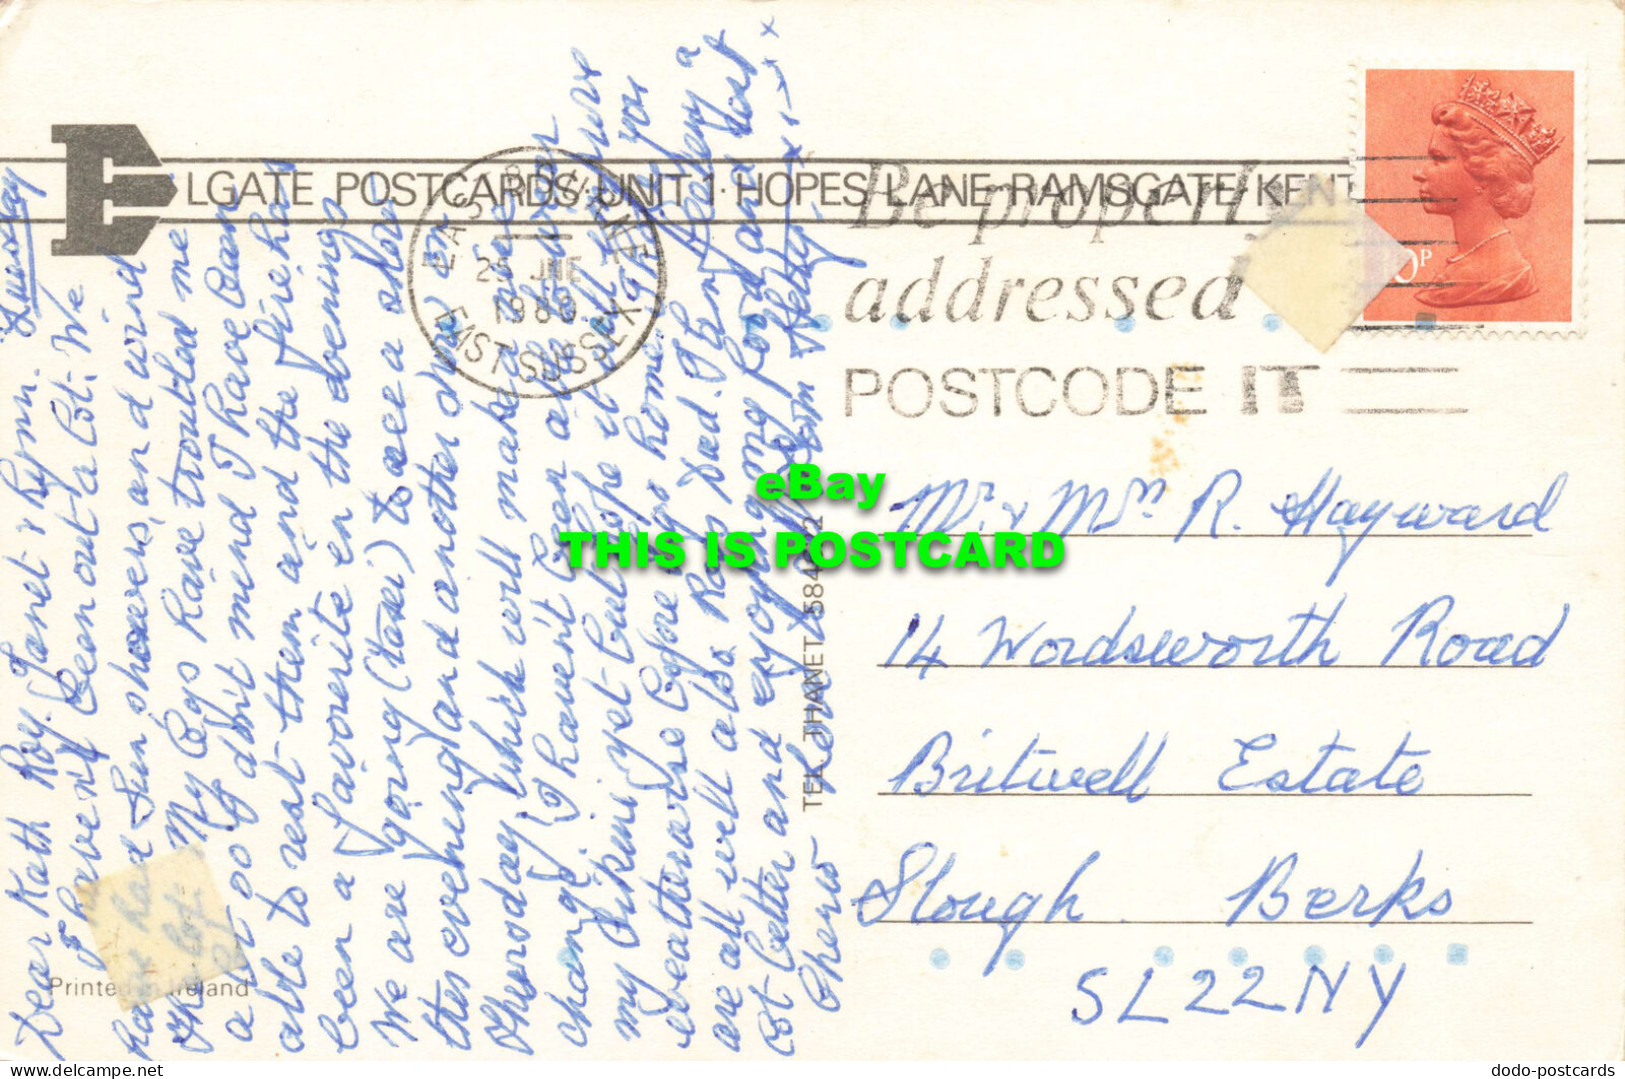 ELGATE POSTCARDS · UNIT 1 · HOPES LANE RAMSGATE KENT
Tuesday
Dear Kath Roy, Janet & Lynn.
I haven't been out a lot. We
have had Sun, showers, and wind
My legs have troubled me
a lot so I don't mind I have been
able to rest them and the fire has
been a favourite in the evenings
We are going (taxi) to see a show
this evening and another show on
Thursday which will make a nice
change. I haven't been able to wear
my Bikini yet but hope it will be
weather before I go home. I hope you
are all well also Roy's Dad. I feel
a lot better and enjoying food and
Cheerio and
love from Hetty
x x x x
EASTBOURNE
25 JUE
1980
EAST SUSSEX
Be properly
addressed
POSTCODE IT
P
Mr & Mrs R. Hayward
14 Wordsworth Road
Britwell Estate
Slough. Berks
SL2 2NY
TEL. THANET 584
Printed in Ireland
eBay
THIS IS POSTCARD
dodo-postcards